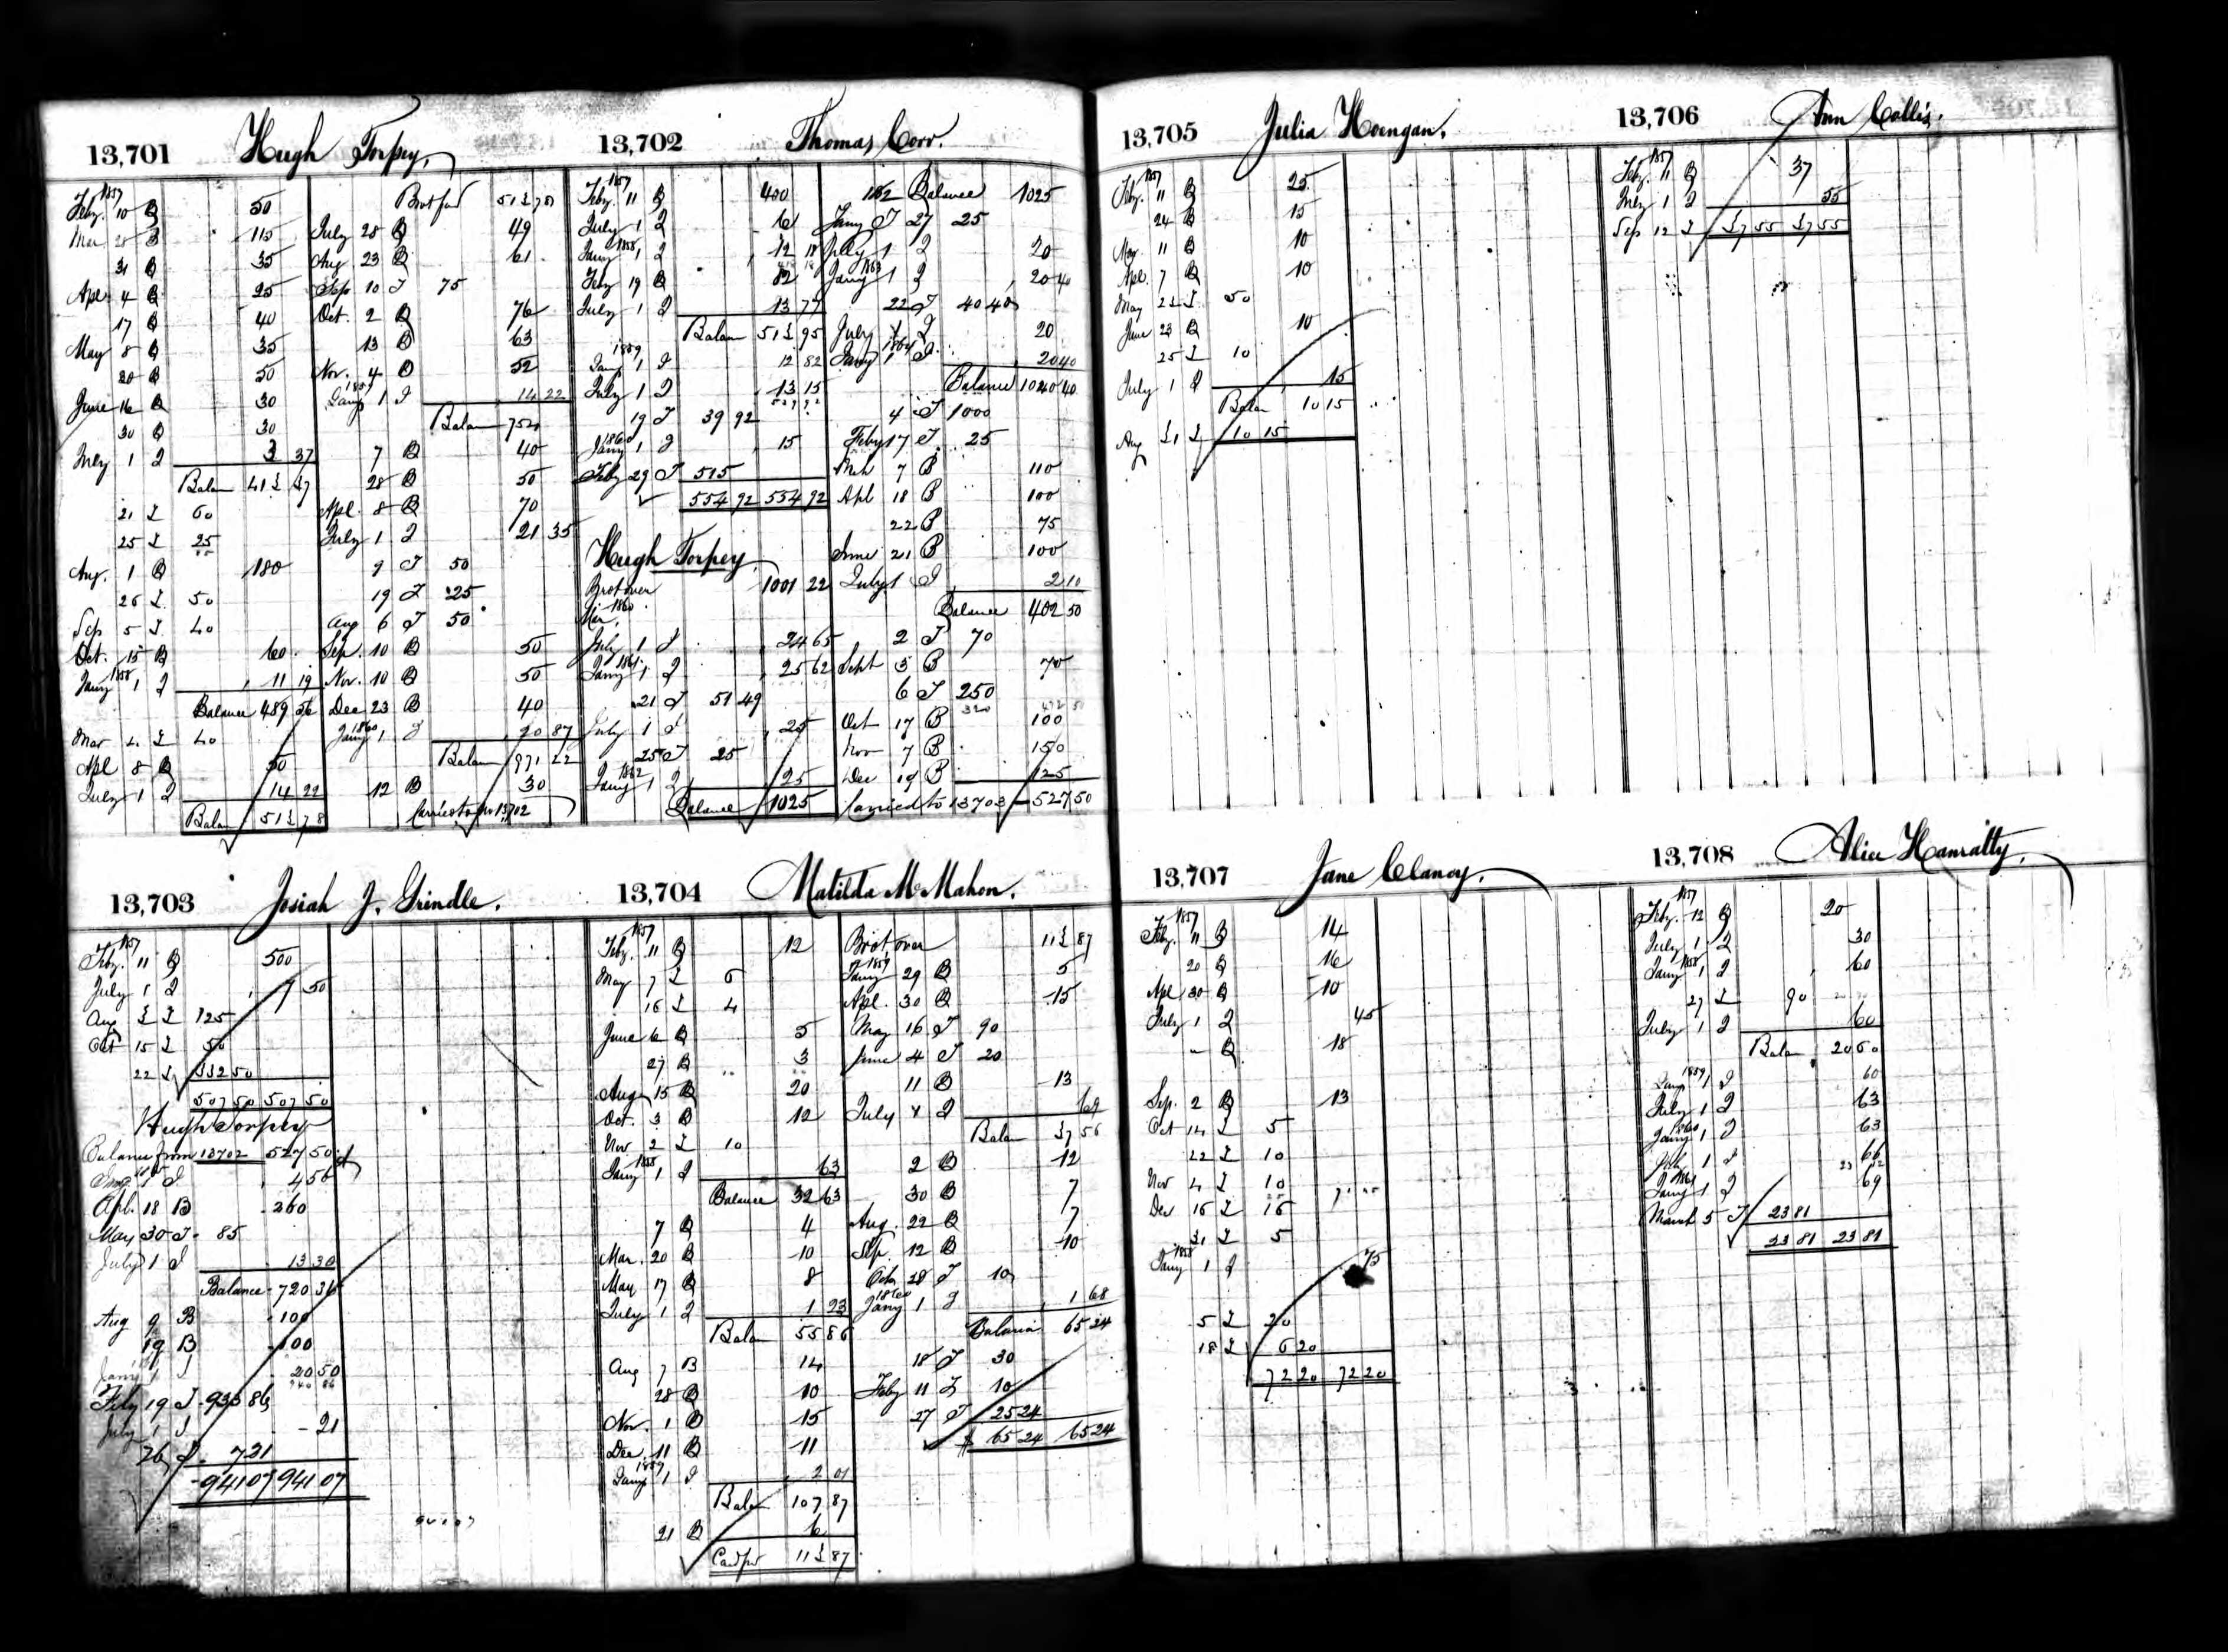 13,701 Hugh Torpey,
1857
Feby. 10 B 50
Mar 28 B 115
31 B 35
Apl 4 B 25
17 B 40
May 8 B 35
30 B 50
June 16 B 30
30 B 30
July 1 I 3 37
Balan 413 37
21 I 60
25 I 25
Aug. 1 B 180
26 I 50
Sep 5 I 40
Oct. 15 B 60
1858
Jany 1 I 11 19
Balance 489 56
Mar 4 I 40
Apl 8 B 50
July 1 I 14 22
Balan 513 78
Brot ford 513 78
July 28 B 49
Aug 23 B 61
Sep 10 I 75
Oct. 2 B 76
13 B 63
Nov. 4 B 52
1859
Jany 1 I 14 22
Balan 754
7 B 40
28 B 50
Apl. 8 B 70
July 1 I 21 35
9 I 50
19 I 25
Aug 6 I 50
Sep. 10 B 50
Nov. 10 B 50
Dec 23 B 40
1860
Jany 1 I 20 87
Balan 971 22
12 B 30
Carried to No 13,702
13,702 Thomas Corr.
1857
Feby. 11 B 400
July 1 I 6
1858
Jany 1 I 12 18
Feby 19 B 82
July 1 I 13 77
Balan 513 95
1859
Jany 1 I 12 82
July 1 I 13 15
19 I 39 92
1860
Jany 1 I 15
Feby 29 I 515
554 92 554 92
Hugh Torpey
Brot over 1001 22
1860
Mar.
July 1 I 24 65
1861
Jany 1 I 25 62
21 I 51 49
July 1 I 25
25 I 25
1862
Jany 1 I 25
Balance 1025
1862 Balance 1025
Jany I 27 25
July 1 I 20
1863
Jany 1 I 20 40
22 I 40 40
July 1 I 20
1864
Jany 1 I 20 40
Balance 1040 40
4 I 1000
Feby 17 I 25
Mch 7 B 110
Apl 18 B 100
22 B 75
June 21 B 100
July 1 I 2 10
Balance 402 50
2 I 70
Sept 5 B 70
6 I 250
Oct 17 B 100
Nov 7 B 150
Dec 19 B 125
Carried to 13703 527 50
13,703 Josiah J. Grindle.
1857
Feby. 11 B 500
July 1 I 7 50
Aug 3 I 125
Oct 15 I 50
22 I 332 50
507 50 507 50
Hugh Torpey
Balance from 13702 527 50
Jany 1 I 4 56
Apl. 18 B 260
May 30 I 85
July 1 I 13 30
Balance 720 36
Aug 9 B 100
19 B 100
Jany 1 I 20 50
Feby 19 I 933 86
July 1 I 21
26 I 7 21
941 07 941 07
13,704 Matilda McMahon.
1857
Feby. 11 B 12
May 7 I 5
16 I 4
June 6 B 5
27 B 3
Aug 15 B 20
Oct. 3 B 12
Nov 2 I 10
1858
Jany 1 I 63
Balance 32 63
7 B 4
Mar. 20 B 10
May 17 B 8
July 1 I 1 23
Balan 55 86
Aug 7 B 14
28 B 10
Nov. 1 B 15
Dec. 11 B 11
1859
Jany 1 I 2 01
Balan 107 87
21 B 6
Card for 113 87
Brot over 113 87
1859
Jany 29 B 5
Apl. 30 B 15
May 16 I 90
June 4 I 20
11 B 13
July 1 I 69
Balan 37 56
2 B 12
30 B 7
Aug. 22 B 7
Sep. 12 B 10
Octr 28 I 10
1860
Jany 1 I 1 68
Balance 65 24
18 I 30
Feby 11 I 10
27 I 25 24
$ 65 24 65 24
13,705 Julia Horngan.
1857
Feby. 11 B 25
24 B 15
May 11 B 10
Apl. 7 B 10
May 23 I 50
June 23 B 10
25 I 10
July 1 I 15
Balan 10 15
Aug 31 I 10 15
13,706 Ann Collis.
1857
Feby. 11 B 37
July 1 I 55
Sep 12 I 37 55 37 55
13,707 Jane Clancy.
1857
Feby. 11 B 14
20 B 16
Apl 30 B 10
July 1 I 45
" B 18
Sep. 2 B 13
Oct 14 I 5
22 I 10
Nov 4 I 10
Dec 16 I 16
31 I 5
1858
Jany 1 I 75
5 I 20
18 I 6 20
72 20 72 20
13,708 Alice Hanratty,
1857
Feby. 12 B 20
July 1 I 30
1858
Jany 1 I 60
27 I 90
July 1 I 60
Balan 20 60
1859
Jany 1 I 60
July 1 I 63
1860
Jany 1 I 63
July 1 I 66
1861
Jany 1 I 69
March 5 I 23 81
23 81 23 81